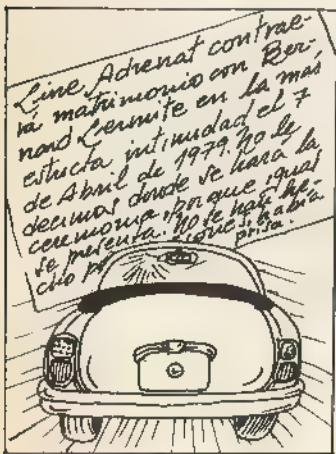 Line Adrenat contrae-
rá matrimonio con Ber-
nard Lermite en la más
estricta intimidad el 7
de Abril de 1979. No le
decimos donde se hará la
ceremonia, porque igual
se presenta. No se han he-
cho p iones había
prisa.